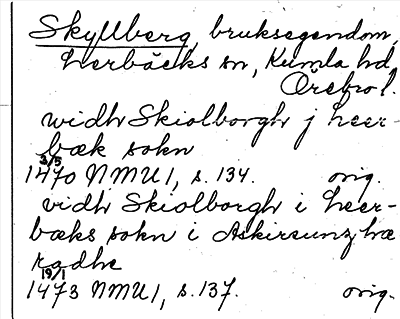 Skyllberg, bruksegendom,
Lerbäcks sn, Kumla hd,
Örebro l.
widh Skiolborgh j leer-
bæk sokn
3/5
1470 NMU 1, s. 134. orig.
vidh Skiolborgh i leer-
bæks sokn i Askirsunz hæ
radhe
19/1
1473 NMU 1, s. 137. orig.